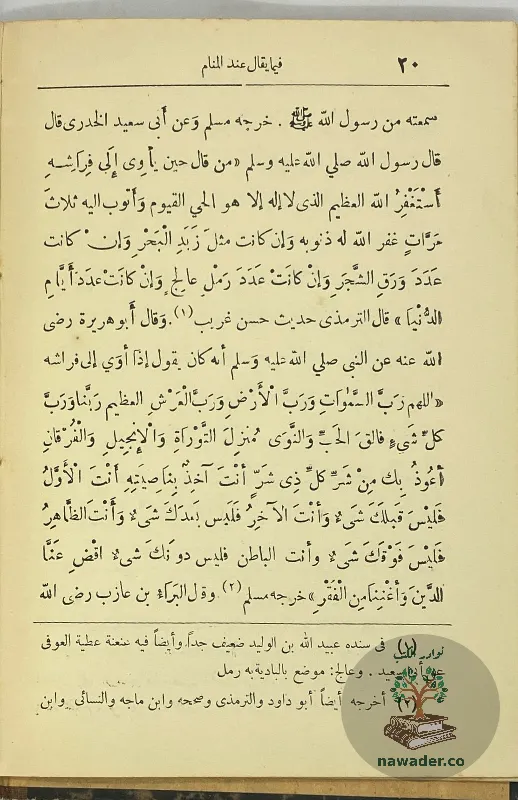 ٢٠
فيما يقال عند المنام
سمعته من رسول الله ﷺ . خرجه مسلم وَعن أَبى سعيد الخدرى قال
قال رسول الله صلي الله عليه وسلم «من قال حين يأوِى إِلَى فِرَاشِـهِ
أَسْتَغْفِرُ الله العظيم الذى لا إله إلا هو الحي القيوم وَأتوب اليه ثلاثَ
مَرَّاتٍ غفر الله له ذنوبه وَإن كانت مثلَ زَبَدِ الْبَحْرِ وَإِن كانت
عَدَدَ وَرَقِ الشَّجَرِ وَإِنْ كَانَتْ عَدَدَ رَمْلِ عالِجٍ وَإِنْ كَانَتْ عَدَدَ أَيَّامِ
الدُّنْيَا » قال الترمذى حديث حسن غريب (١) . وَقال أَبو هريرة رضى
الله عنه عن النبى صلي الله عليه وَسلم أنه كان يقول إذا أوَي إلى فراشه
«اللهم رَبَّ السَّمَوَاتِ وَرَبَّ الْأَرْضِ وَرَبَّ الْعَرْشِ العظيم رَبَّنا وَرَبَّ
كلِّ شَيءٍ فالقَ الحَبِّ وَالنَّوَى مُنزِلَ التَّوْرَاةِ وَالْإِنجيلِ وَالْفُرْقَانِ
أَعُوذُ بِك مِنْ شَرِّ كلِّ ذِى شَرٍّ أنْتَ آخِذٌ بِنَاصِيَتِهِ أَنْتَ الْأَوَّلُ
فَلَيْسَ قَبلَكَ شَىءٌ وَأَنْتَ الآخِرُ فَلَيْسَ بَعْدَكَ شَىءٌ وَأَنْتَ الظَّاهِرُ
فَلَيْسَ فَوْقَكَ شَىءٌ وأنت الباطن فليس دونَكَ شَىءٌ اقْضِ عَنَّا
الدَّينَ وَأَغْنِنَا مِنَ الْفَقْرِ » خرجه مسلم (٢) وقال البَرَاءُ بن عازب رضى الله
(١) فى سنده عبيد الله بن الوليد ضعيف جداً. وأيضاً فيه عنعنة عطية العوفى
عن أبى سعيد . وعالج: موضع بالبادية به رمل
(٢) أخرجه أيضاً أبو داود والترمذى وصححه وابن ماجه والنسائى وابن
نوادر الكتب
nawader.co